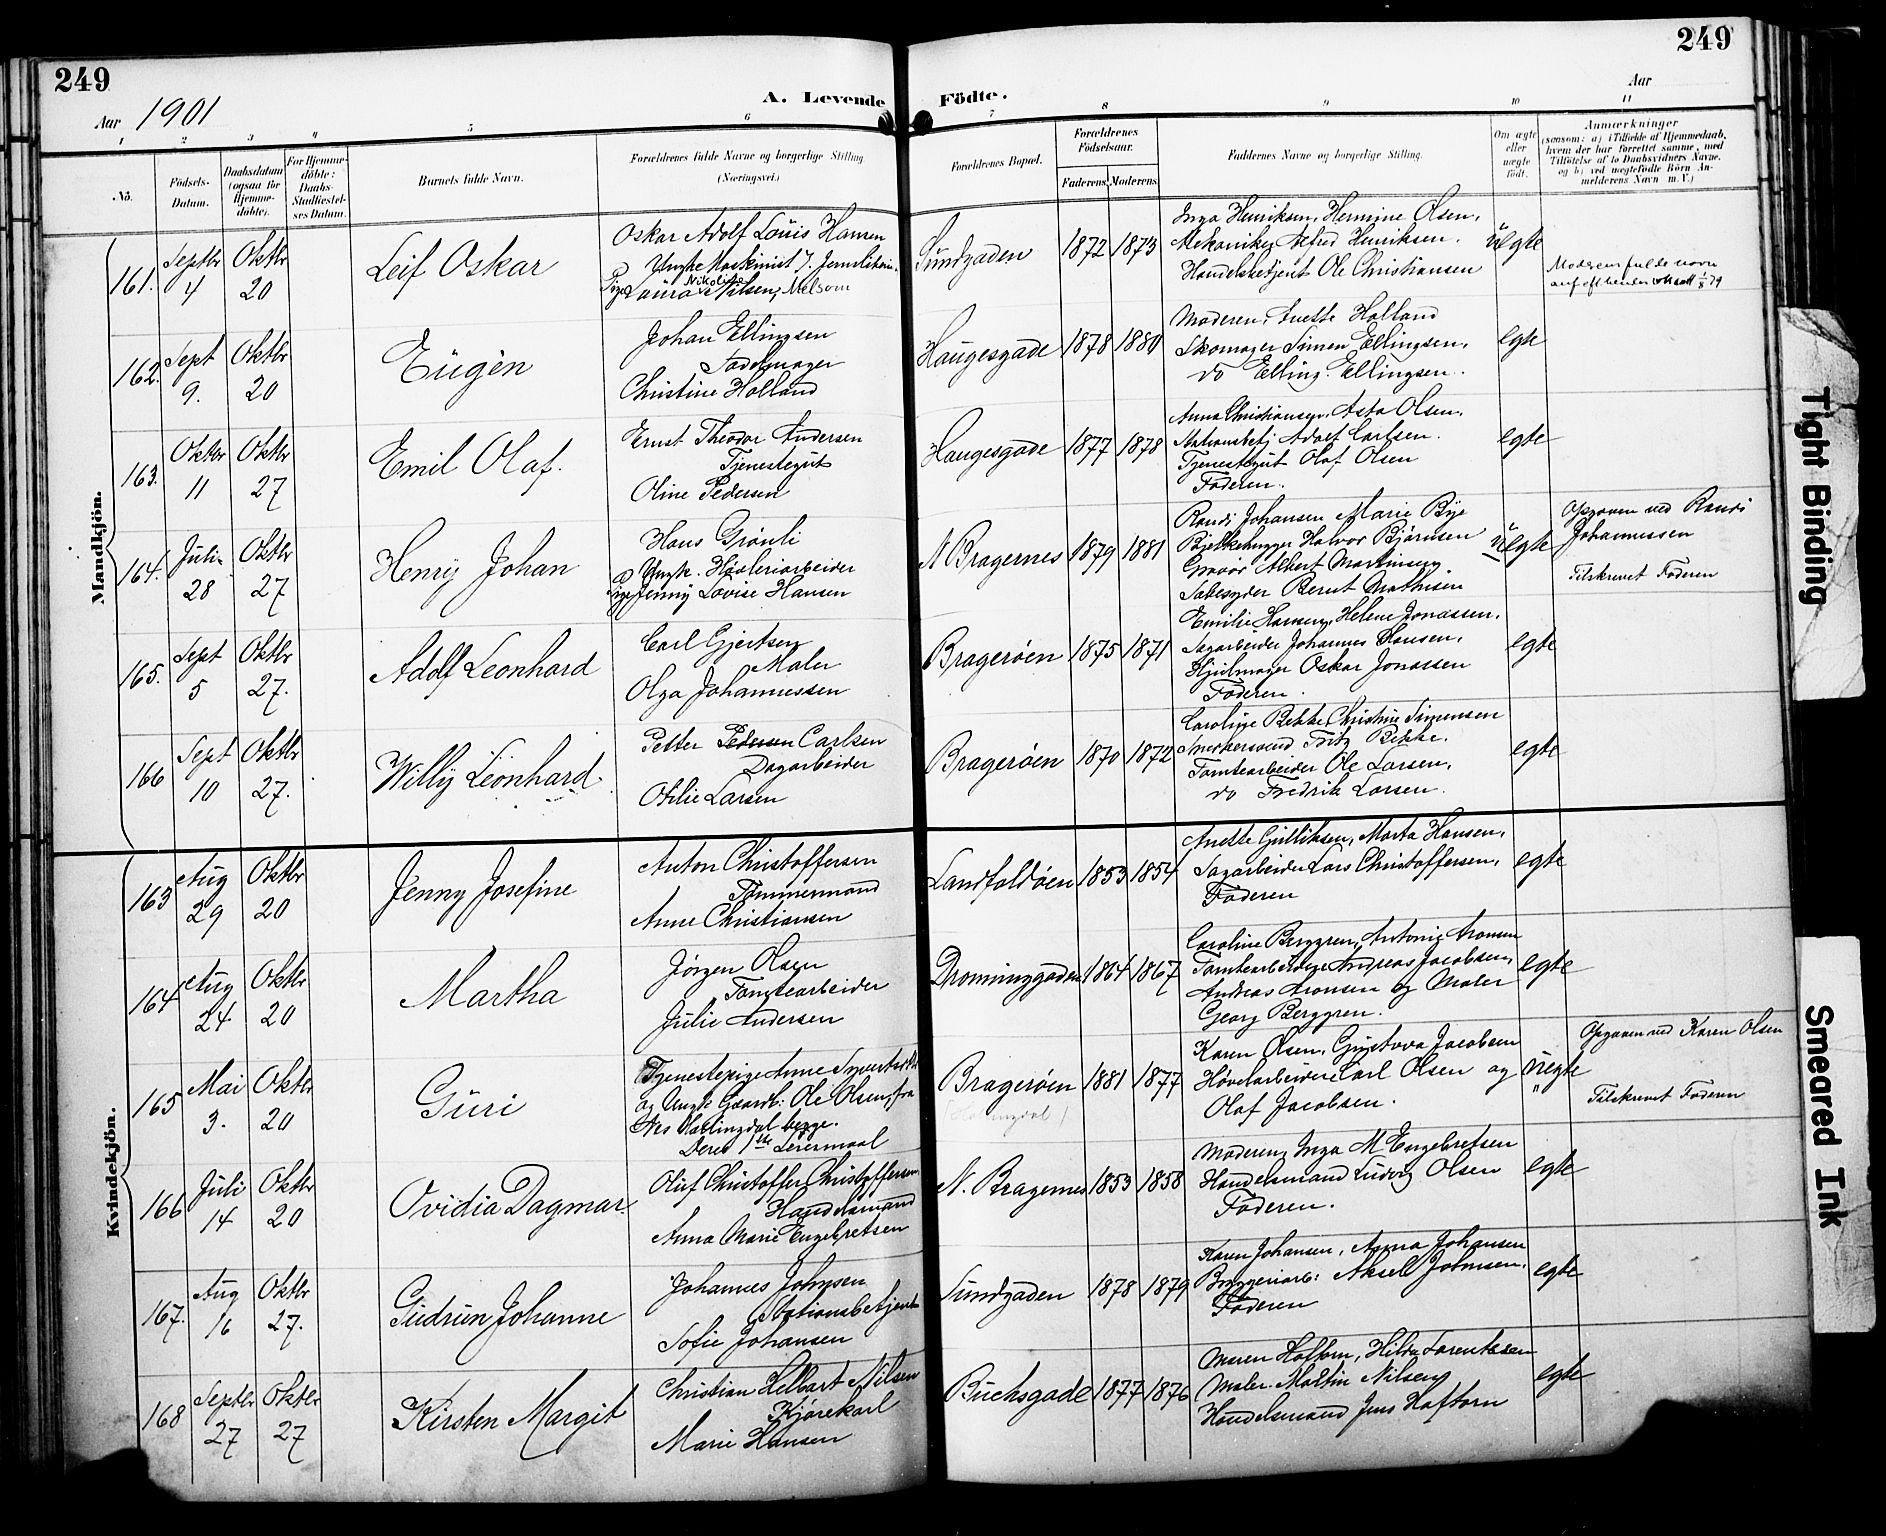 249
249
Aar 1901
A. Levende Födte.
Aar
1 2 3 4 5 6 7 8 9 10 11
No.
Födsels-Datum.
Daabsdatum (ogsaa for Hjemmedöbte).
For Hjemmedöbte: Daabs-Stadfæstelses Datum.
Barnets fulde Navn.
Forældrenes fulde Navne og borgerlige Stilling. (Næringsvei.)
Forældrenes Bopæl.
Forældrenes Födselsaar.
Faderens.
Moderens.
Faddernes Navne og borgerlige Stilling.
Om ægte eller uægte födt.
Anmærkninger
(saasom: a) i Tilfælde af Hjemmedaab, hvem der har forrettet samme, med Tilföielse af to Daabsvidners Navne, og b) ved uægtefödte Börn Anmelderens Navn m. V.)
Mandkjön.
161.
Septbr 4
Oktbr 20
Leif Oskar
Oskar Adolf Louis Hansen
Ungk Maskinist
Pige Laura Nikoline Nilsen, Melsom
Sundgaden
1872 1873
Inga Henriksen, Hermine Olsen,
Mekaniker Alfred Henriksen.
Handelsbetjent Ole Christiansen
uegte
Moderens fulde navn
162.
Sept 9.
Oktbr 20
Eugèn
Johan Ellingsen
Sadelmager
Christine Holland
Haugesgade
1878 1880
Moderen, Anette Holland
Skomager Simen Ellingsen,
do Elling Ellingsen.
egte
163.
Oktbr 11
Oktbr 27
Emil Olaf.
Ernst Theodor Andersen
Tjenestegut
Oline Pedersen
Haugesgade
1877 1878
Anna Christiansen, Asta Olsen,
Stationsbetj Adolf Carlsen.
Tjenestegut Olaf Olsen
Faderen.
egte
164.
Juli 28
Oktbr 27
Henry Johan
Hans Grönli
Ungk. Høvleriarbeider
Pige Jenny Lovise Hansen
N Bragernes
1879 1881
Randi Johansen Marie Bye
Bjelkehugger Halvor Björnsen
Gravör Albert Martinsen
Sabesyder Bernt Mathisen
uegte
Opgaven ved Randi
Johannessen
Tilskrevet Faderen
165.
Sept 5
Oktbr 27.
Adolf Leonhard
Carl Gjertsen
Maler
Olga Johannessen
Bragerøen
1875 1871
Emilie Hansen, Helene Jonassen,
Sagarbeider Johannes Hansen,
Hjulmager Oskar Jonassen
Faderen.
egte
166
Sept 10
Oktbr 27.
Willy Leonhard.
Petter Pedersen Carlsen
Dagarbeider
Otilie Larsen
Bragerøen
1870 1872
Caroline Bekke, Christine Simensen
Snedkersvend Fritz Bekke.
Tomtearbeider Ole Larsen,
do Fredrik Larsen.
egte
Kvindekjön.
163
Aug 29
Oktbr 20
Jenny Josefine
Anton Christoffersen
Tømmermand
Anne Christiansen
Landfaldøen
1853 1854
Anette Gulliksen, Marta Hansen,
Sagarbeider Lars Christoffersen,
Faderen
egte
164
Aug 24
Oktbr 20
Martha
Jörgen Olsen
Tomtearbeider
Julie Andersen
Dronninggaden
1864 1867
Caroline Berggren, Antonie Aronsen
Andreas Jacobsen,
Andreas Aronsen og Maler
Georg Berggren.
egte
165
Mai 3.
Oktbr 20
Guri
Tjenestepige Anne
og Ungk Gaardb: Ole Olsen, fra
Nes Hallingdal begge.
Deres 1ste Leiermaal
Bragerøen
1881 1877
Karen Olsen, Gustava Jacobsen
Høvelarbeidere Carl Olsen og
Olaf Jacobsen.
uegte
Opgaven ved Karen Olsen
Tilskrevet Faderen
166
Juli 14
Oktbr 20
Ovidia Dagmar.
Oluf Christoffer Christoffersen
Handelsmand
Anna Marie Engebretsen
N. Bragernes
1853 1858
Moderen, Inga M Engebretsen
Handelsmand Ludvig Olsen
Faderen.
egte
167.
Aug 16
Oktbr 27.
Gudrun Johanne
Johannes Johnsen
Stationsbetjent
Sofie Johansen
Sundgaden
1878 1879
Karen Johansen, Anna Johansen
Bryggeriarb: Aksel Johnsen.
Faderen
egte
168
Septbr 27
Oktbr 27
Kirsten Margit
Christian Helbart Nilsen
Kjørekarl
Marie Hansen
Buchsgade
1877 1876
Maren Haftorn, Hilda Larentzen
Maler Martin Nilsen
Handelsmand Jens Haftorn
egte
Tight Binding
Smeared Ink